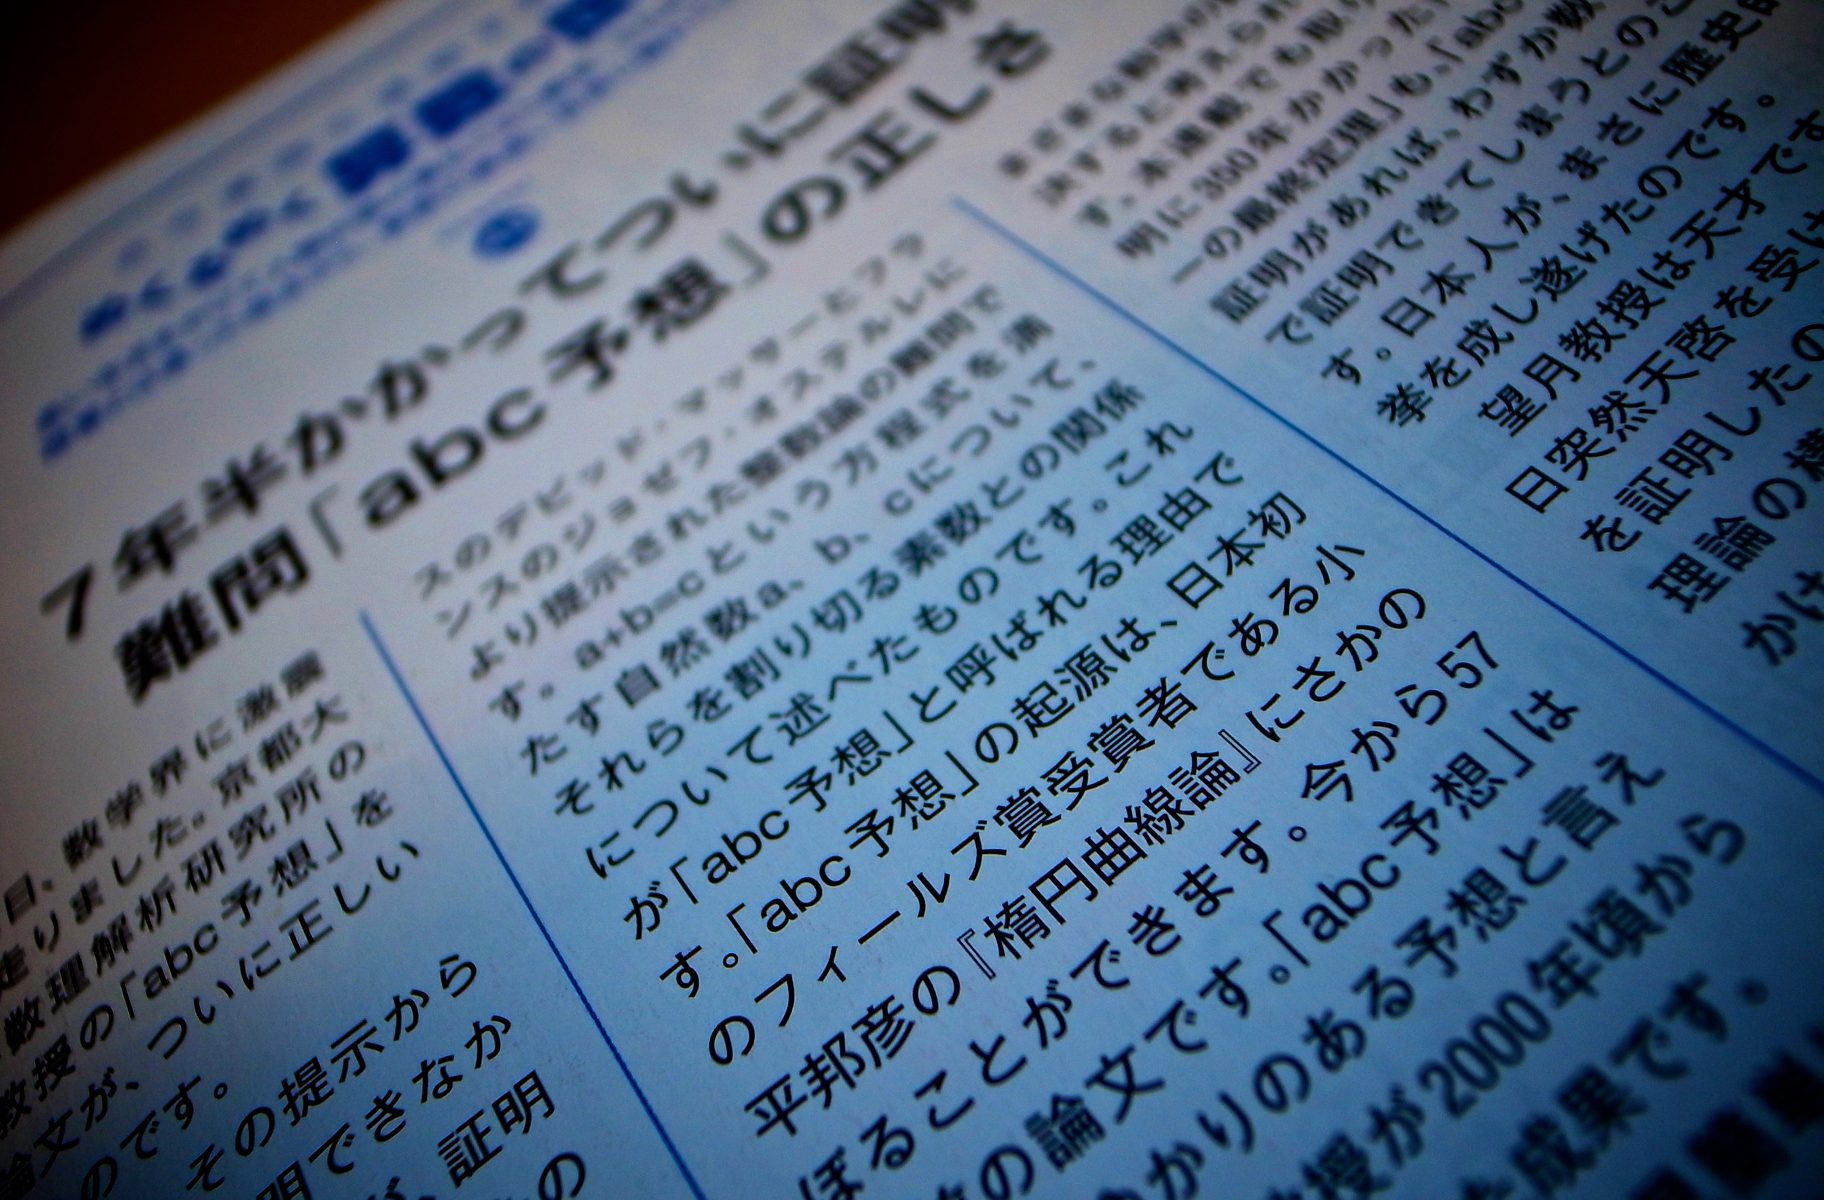 7年半かかってついに証明
難問「abc予想」の正しさ
日、数学界に激震
走りました。京都大
数理解析研究所の
教授の「abc予想」を
論文が、ついに正しい
のです。
その提示から
明できなか
、証明
の
スのデビッド・マッサーとフラ
ンスのジョゼフ・オステルレに
より提示された整数論の難問で
す。a+b=cという方程式を満
たす自然数a、b、cについて、
それらを割り切る素数との関係
について述べたものです。これ
が「abc予想」と呼ばれる理由で
す。「abc予想」の起源は、日本初
のフィールズ賞受賞者である小
平邦彦の『楕円曲線論』にさかの
ぼることができます。今から57
の論文です。「abc予想」は
かりのある予想と言え
授が2000年頃から
成果です。
決すると考えられ
す。本連載でも取り
明に350年かかった
ーの最終定理」も、「abc
証明があれば、わずか数
で証明できてしまうとのこ
す。日本人が、まさに歴史的
挙を成し遂げたのです。
望月教授は天才です
日突然天啓を受け
を証明したの
理論の構
かけ